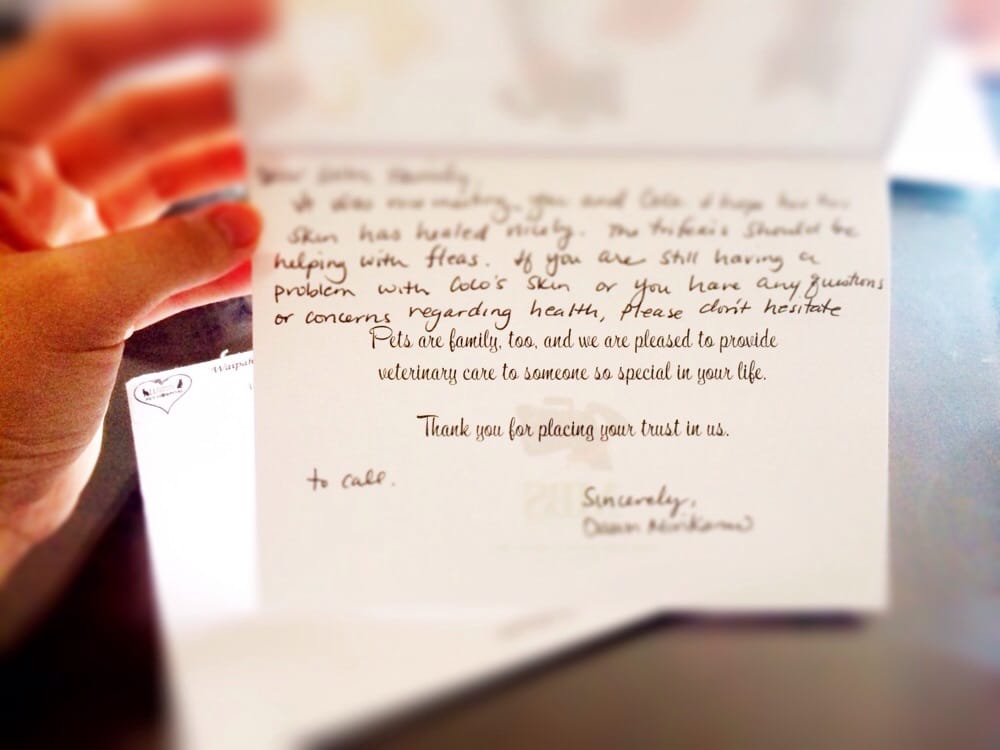 It was nice meeting you and Coco. I hope
skin has healed nicely. The trifexis should be
helping with fleas. If you are still having a
problem with Coco's skin or you have any questions
or concerns regarding health, please don't hesitate
Pets are family, too, and we are pleased to provide
veterinary care to someone so special in your life.
Thank you for placing your trust in us.
to call.
Sincerely,